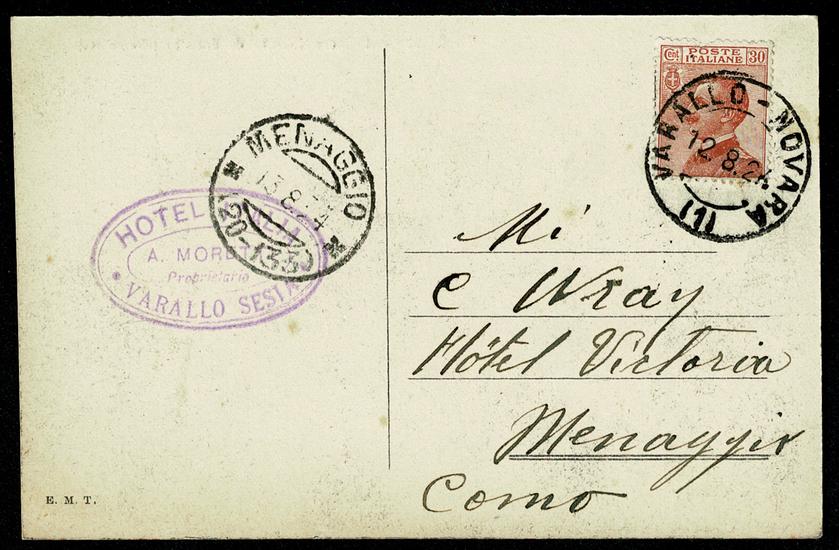 Cent POSTE ITALIANE 30
VARALLO-NOVARA (1)
12.8.24
* MENAGGIO *
13.8.24
(20-133)
HOTEL
A.
Proprietario
* VARALLO SESIA
Mi
C Wray
Hôtel Victoria
Menaggio
Como
E. M. T.